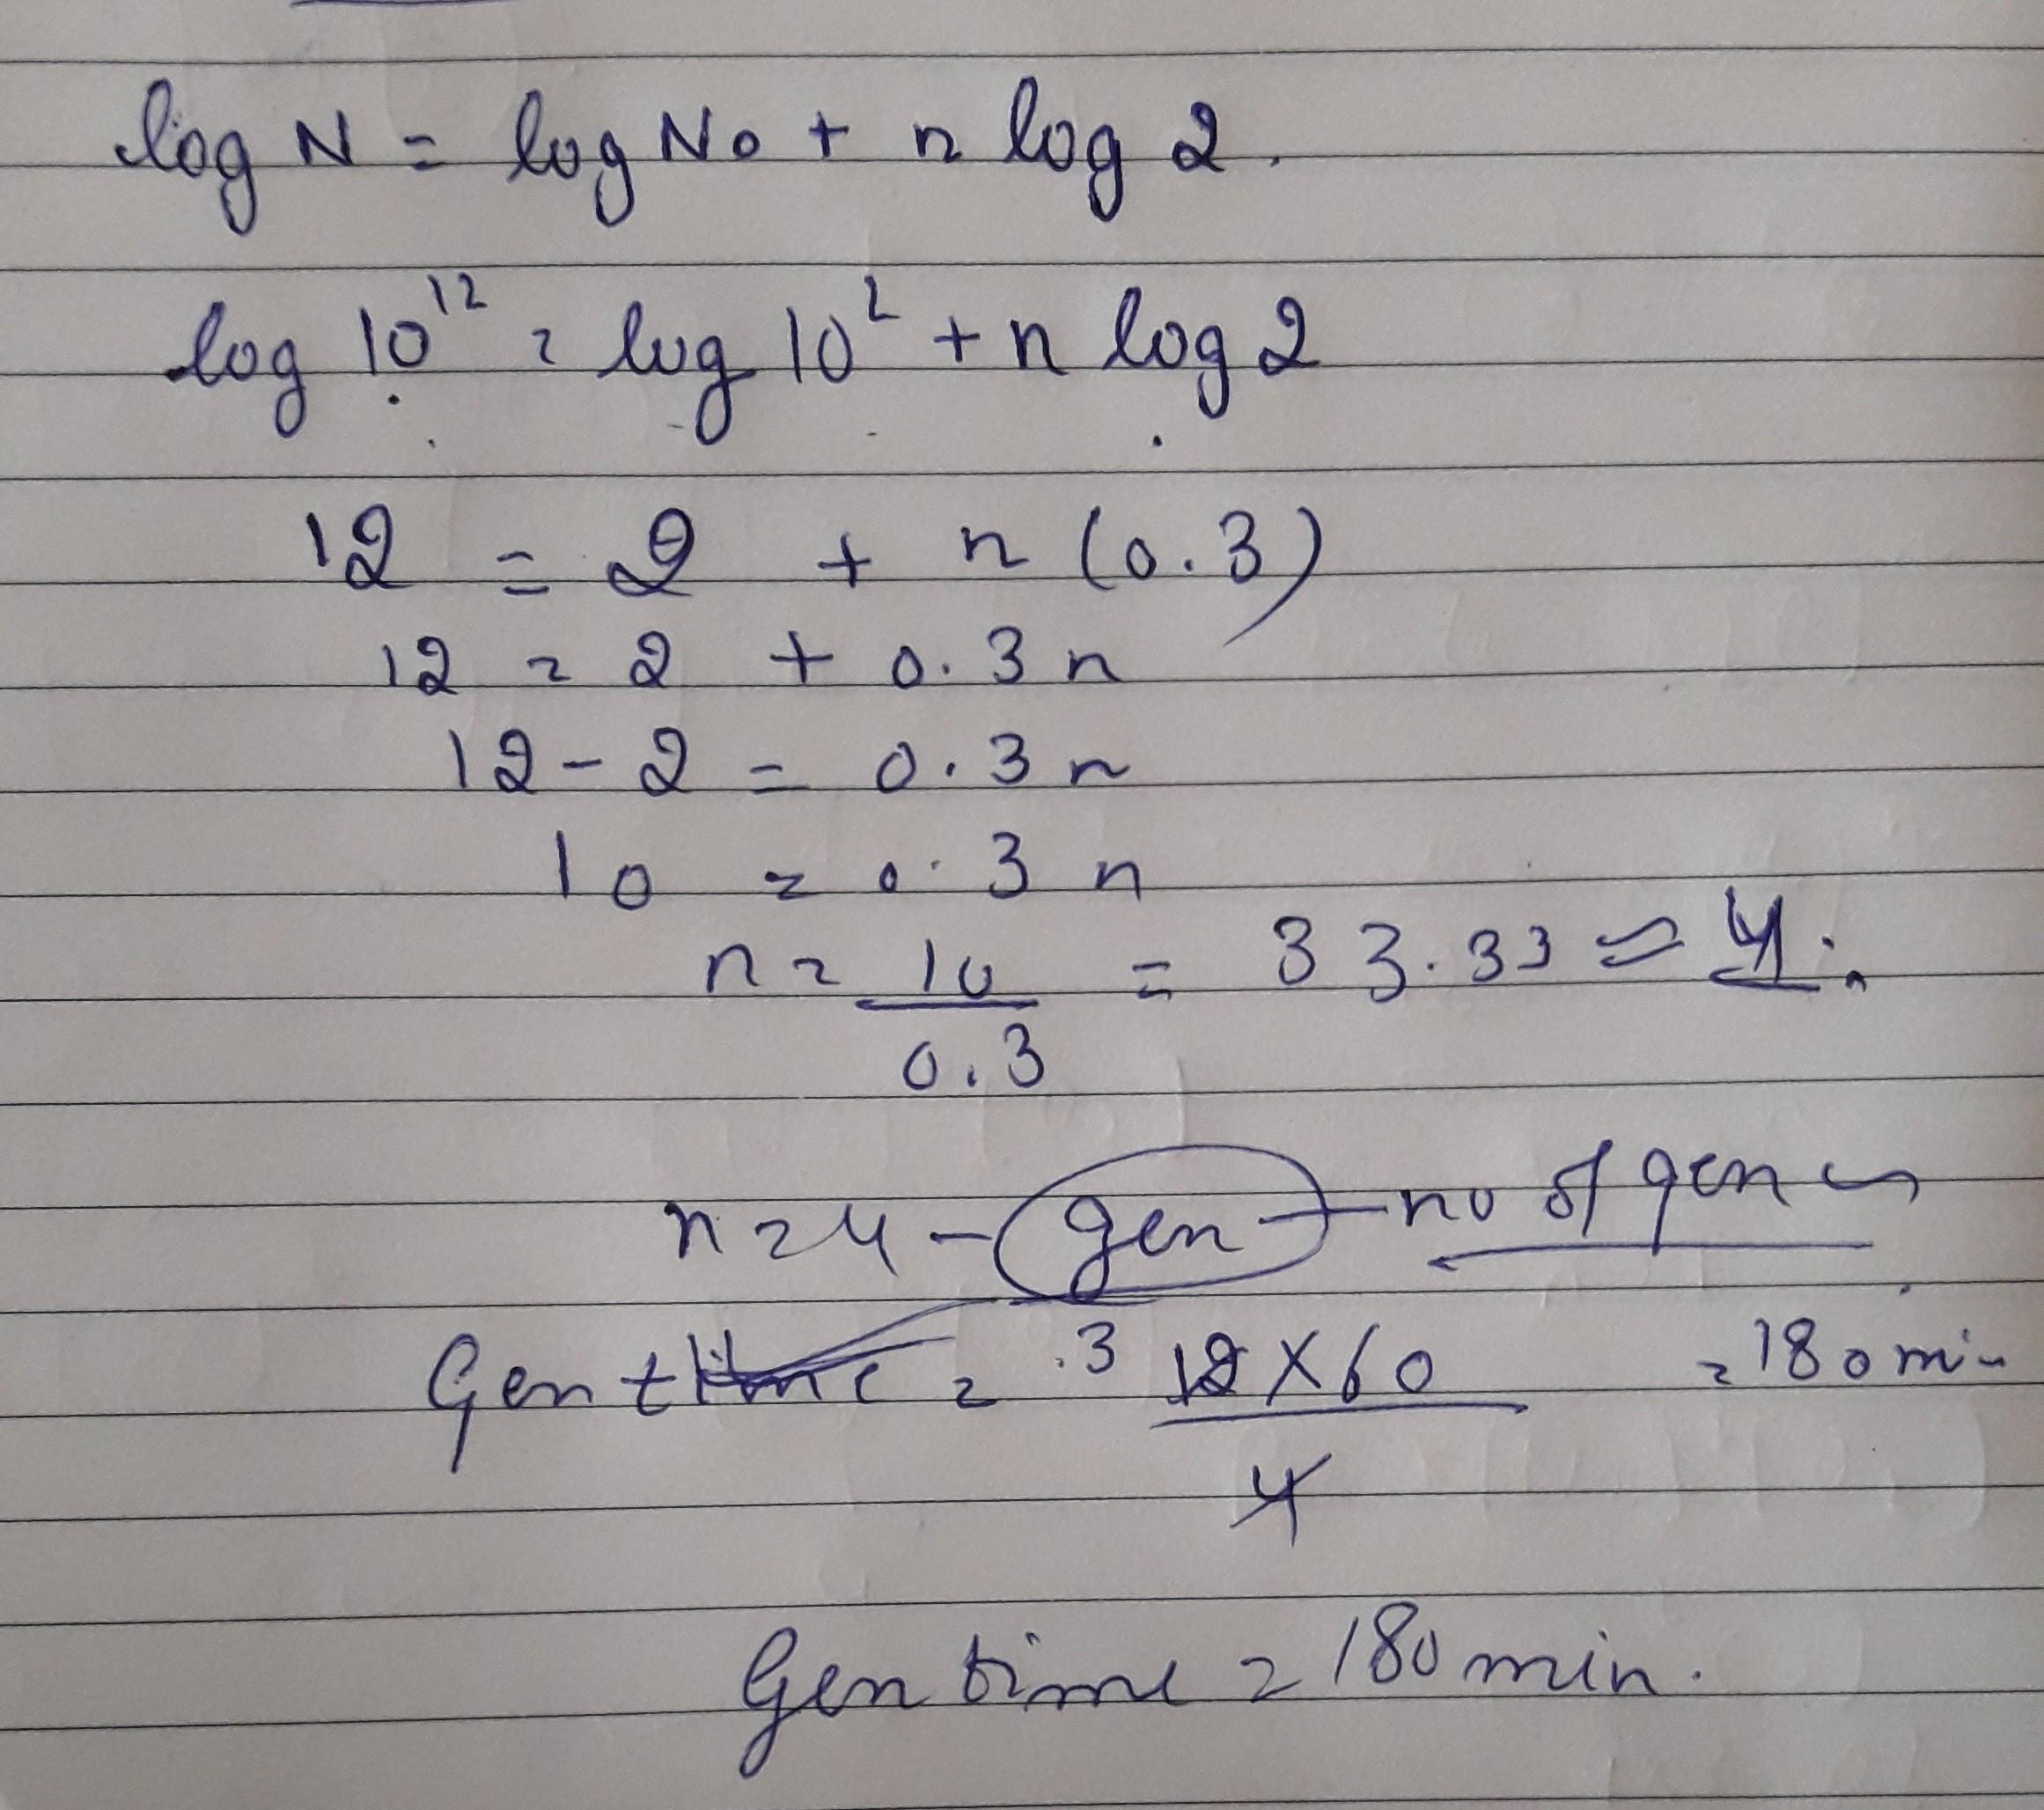 log N = log No + n log 2.
log 10¹² = log 10² + n log 2
12 = 2 + n (0.3)
12 = 2 + 0.3 n
12 - 2 = 0.3 n
10 = 0.3 n
n = 10/0.3 = 33.33 = 4.
n = 4 - gen - no of gen
Gen time = 3 12 X 60 / 4 = 180 min
Gen time = 180 min.